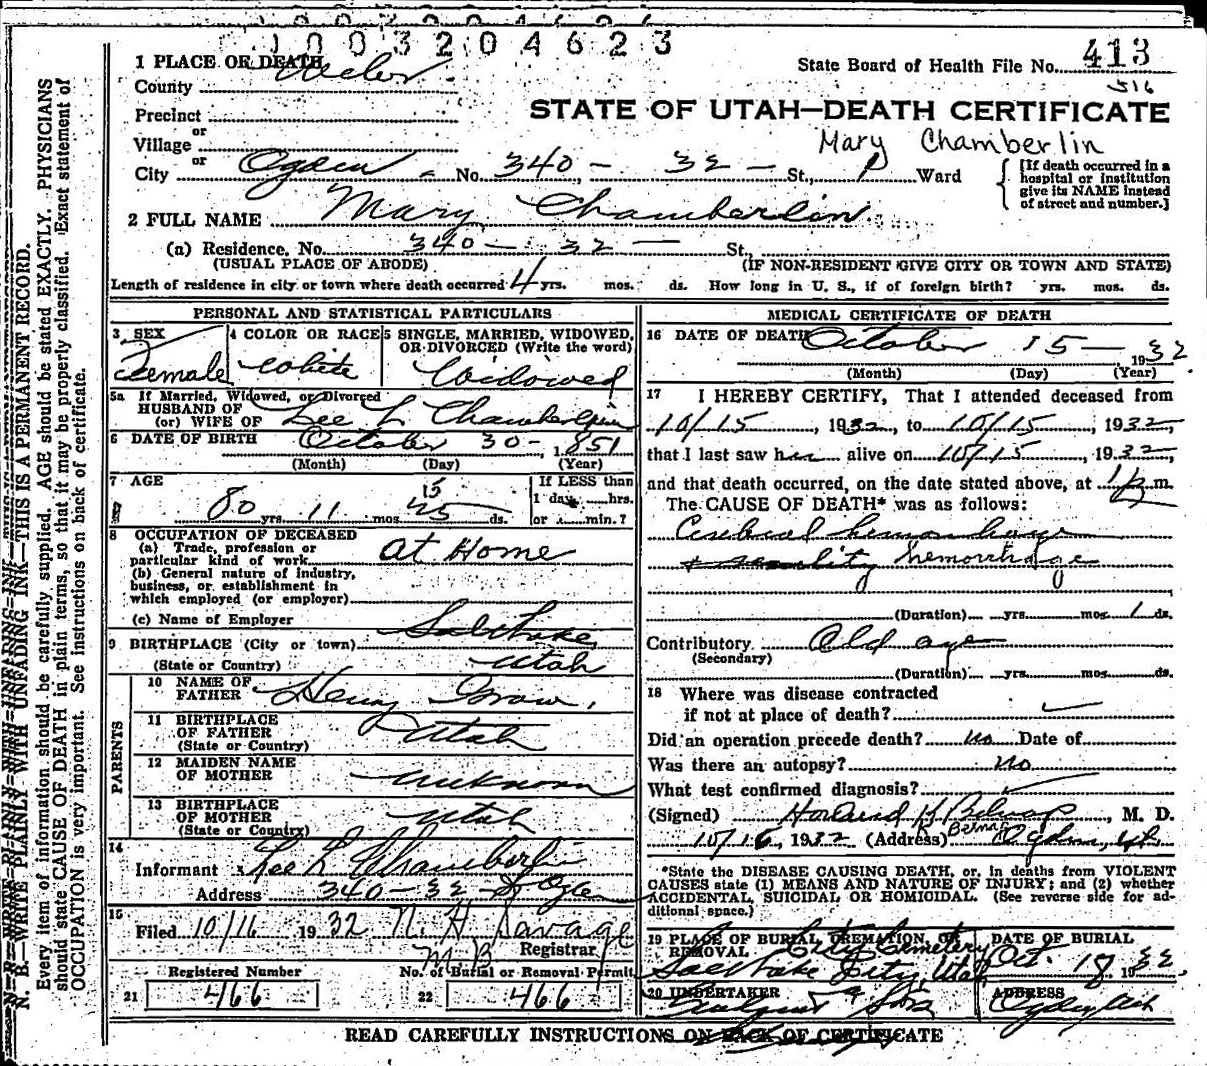 1003204623
1 PLACE OF DEATH Weber
State Board of Health File No. 413
County
516
STATE OF UTAH—DEATH CERTIFICATE
Precinct
or
Village
Mary Chamberlin
or
City Ogden No. 340 - 32 - St., Ward
[If death occurred in a hospital or institution give its NAME instead of street and number.]
2 FULL NAME Mary Chamberlin
(a) Residence, No. 340 - 32 - St.,
(USUAL PLACE OF ABODE) (IF NON-RESIDENT GIVE CITY OR TOWN AND STATE)
Length of residence in city or town where death occurred 4 yrs. mos. ds. How long in U. S., if of foreign birth? yrs. mos. ds.
PERSONAL AND STATISTICAL PARTICULARS
3 SEX
Female
4 COLOR OR RACE
White
5 SINGLE, MARRIED, WIDOWED, OR DIVORCED (Write the word)
Widowed
5a If Married, Widowed, or Divorced
HUSBAND OF
(or) WIFE OF Lee L Chamberlin
6 DATE OF BIRTH October 30 - 1851
(Month) (Day) (Year)
7 AGE
80 yrs. 11 mos. 15 ds.
If LESS than
1 day, hrs.
or min.?
8 OCCUPATION OF DECEASED
(a) Trade, profession or particular kind of work At Home
(b) General nature of industry, business, or establishment in which employed (or employer)
(c) Name of Employer
9 BIRTHPLACE (City or town) Salt Lake,
(State or Country) Utah
PARENTS
10 NAME OF FATHER Henry Grow,
11 BIRTHPLACE OF FATHER (State or Country) Utah
12 MAIDEN NAME OF MOTHER unknown
13 BIRTHPLACE OF MOTHER (State or Country) Utah
14
Informant Lee L Chamberlin
Address 340 - 32 St Ogden
15
Filed 10/16 1932 N. H. Savage
M.B. Registrar
Registered Number
21 466
No. of Burial or Removal Permit
22 466
MEDICAL CERTIFICATE OF DEATH
16 DATE OF DEATH October 15 - 1932
(Month) (Day) (Year)
17 I HEREBY CERTIFY, That I attended deceased from
10/15, 1932, to 10/15, 1932,
that I last saw her alive on 10/15, 1932,
and that death occurred, on the date stated above, at m.
The CAUSE OF DEATH* was as follows:
Cerebral hemorrhage
+ senility hemorrhage
(Duration) yrs. mos. 1 ds.
Contributory Old age
(Secondary)
(Duration) yrs. mos. ds.
18 Where was disease contracted
if not at place of death?
Did an operation precede death? no Date of
Was there an autopsy? no
What test confirmed diagnosis?
(Signed) M. D.
10/16, 1932 (Address) Ogden, Ut.
*State the DISEASE CAUSING DEATH, or, in deaths from VIOLENT CAUSES state (1) MEANS AND NATURE OF INJURY; and (2) whether ACCIDENTAL, SUICIDAL OR HOMICIDAL. (See reverse side for additional space.)
19 PLACE OF BURIAL, CREMATION, OR REMOVAL City Cemetery
Salt Lake City, Utah
DATE OF BURIAL
Oct. 18 1932
20 UNDERTAKER
& Sons
ADDRESS
Ogden Utah
READ CAREFULLY INSTRUCTIONS ON BACK OF CERTIFICATE
N. B.—WRITE PLAINLY WITH UNFADING INK—THIS IS A PERMANENT RECORD.
Every item of information should be carefully supplied. AGE should be stated EXACTLY. PHYSICIANS
should state CAUSE OF DEATH in plain terms, so that it may be properly classified. Exact statement of
OCCUPATION is very important. See instructions on back of certificate.